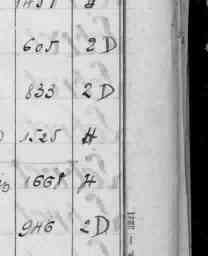 605 2 D
833 2 D
1525 H
1668 H
946 2 D